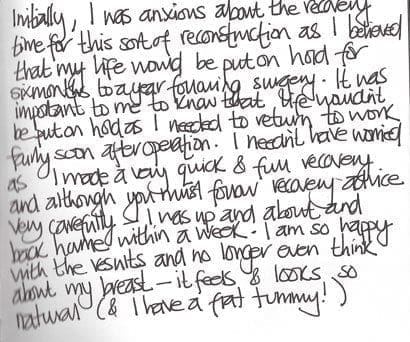 Initially, I was anxious about the recovery
time for this sort of reconstruction as I believed
that my life would be put on hold for
six months to a year following surgery. It was
important to me to know that life wouldn't
be put on hold as I needed to return to work
fairly soon after operation. I needn't have worried
as I made a very quick & full recovery
and although you must follow recovery advice
very carefully I was up and about and
back home within a week. I am so happy
with the results and no longer even think
about my breast - it feels & looks so
natural (& I have a flat tummy!)